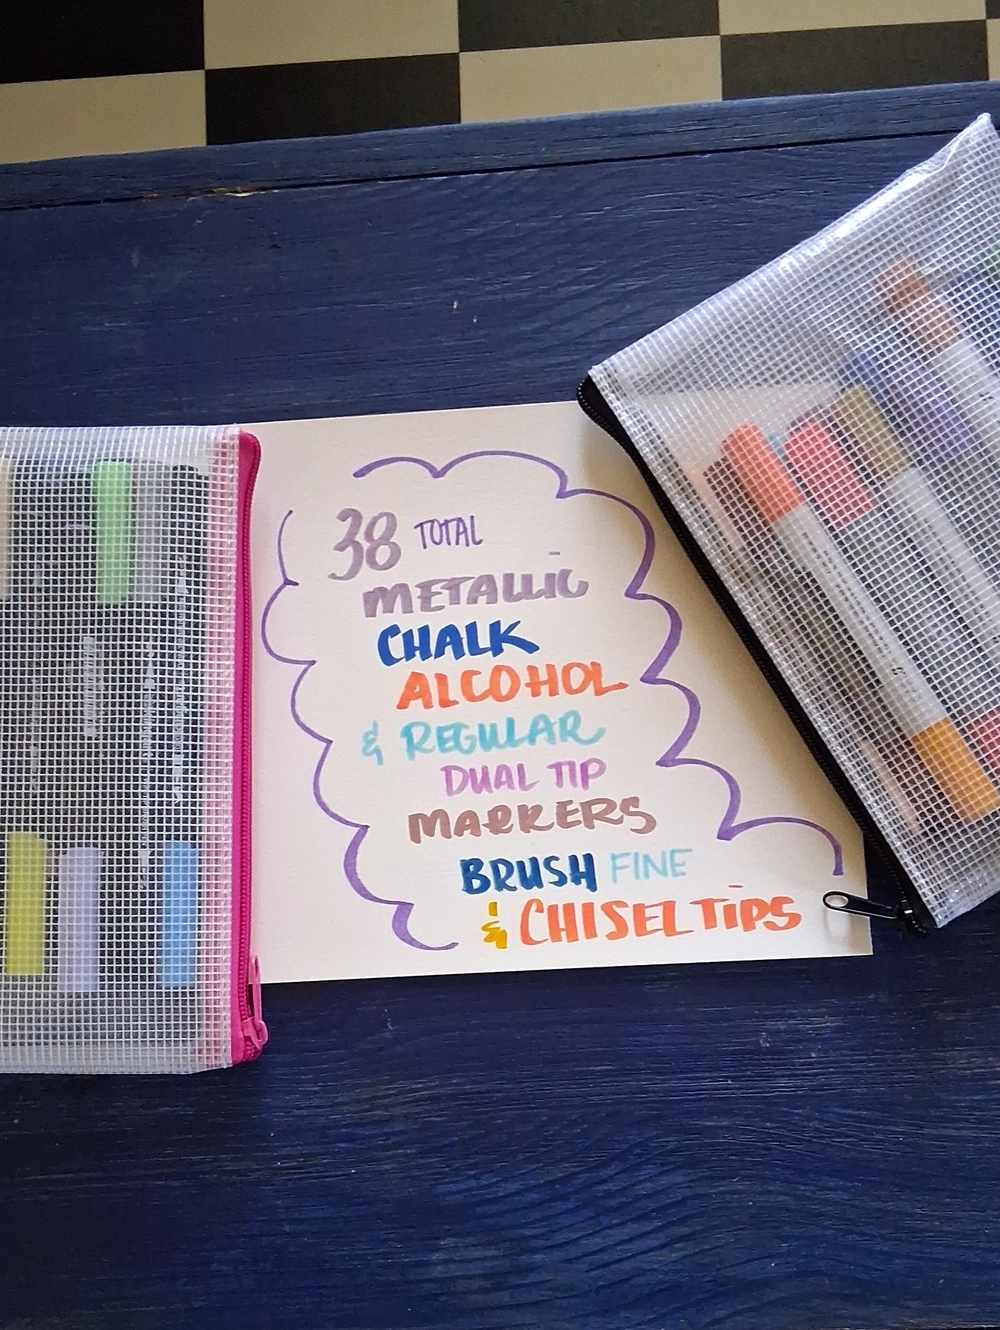 38 TOTAL
METALLIC
CHALK
ALCOHOL
& REGULAR
DUAL TIP
MARKERS
BRUSH FINE
& CHISEL TIPS